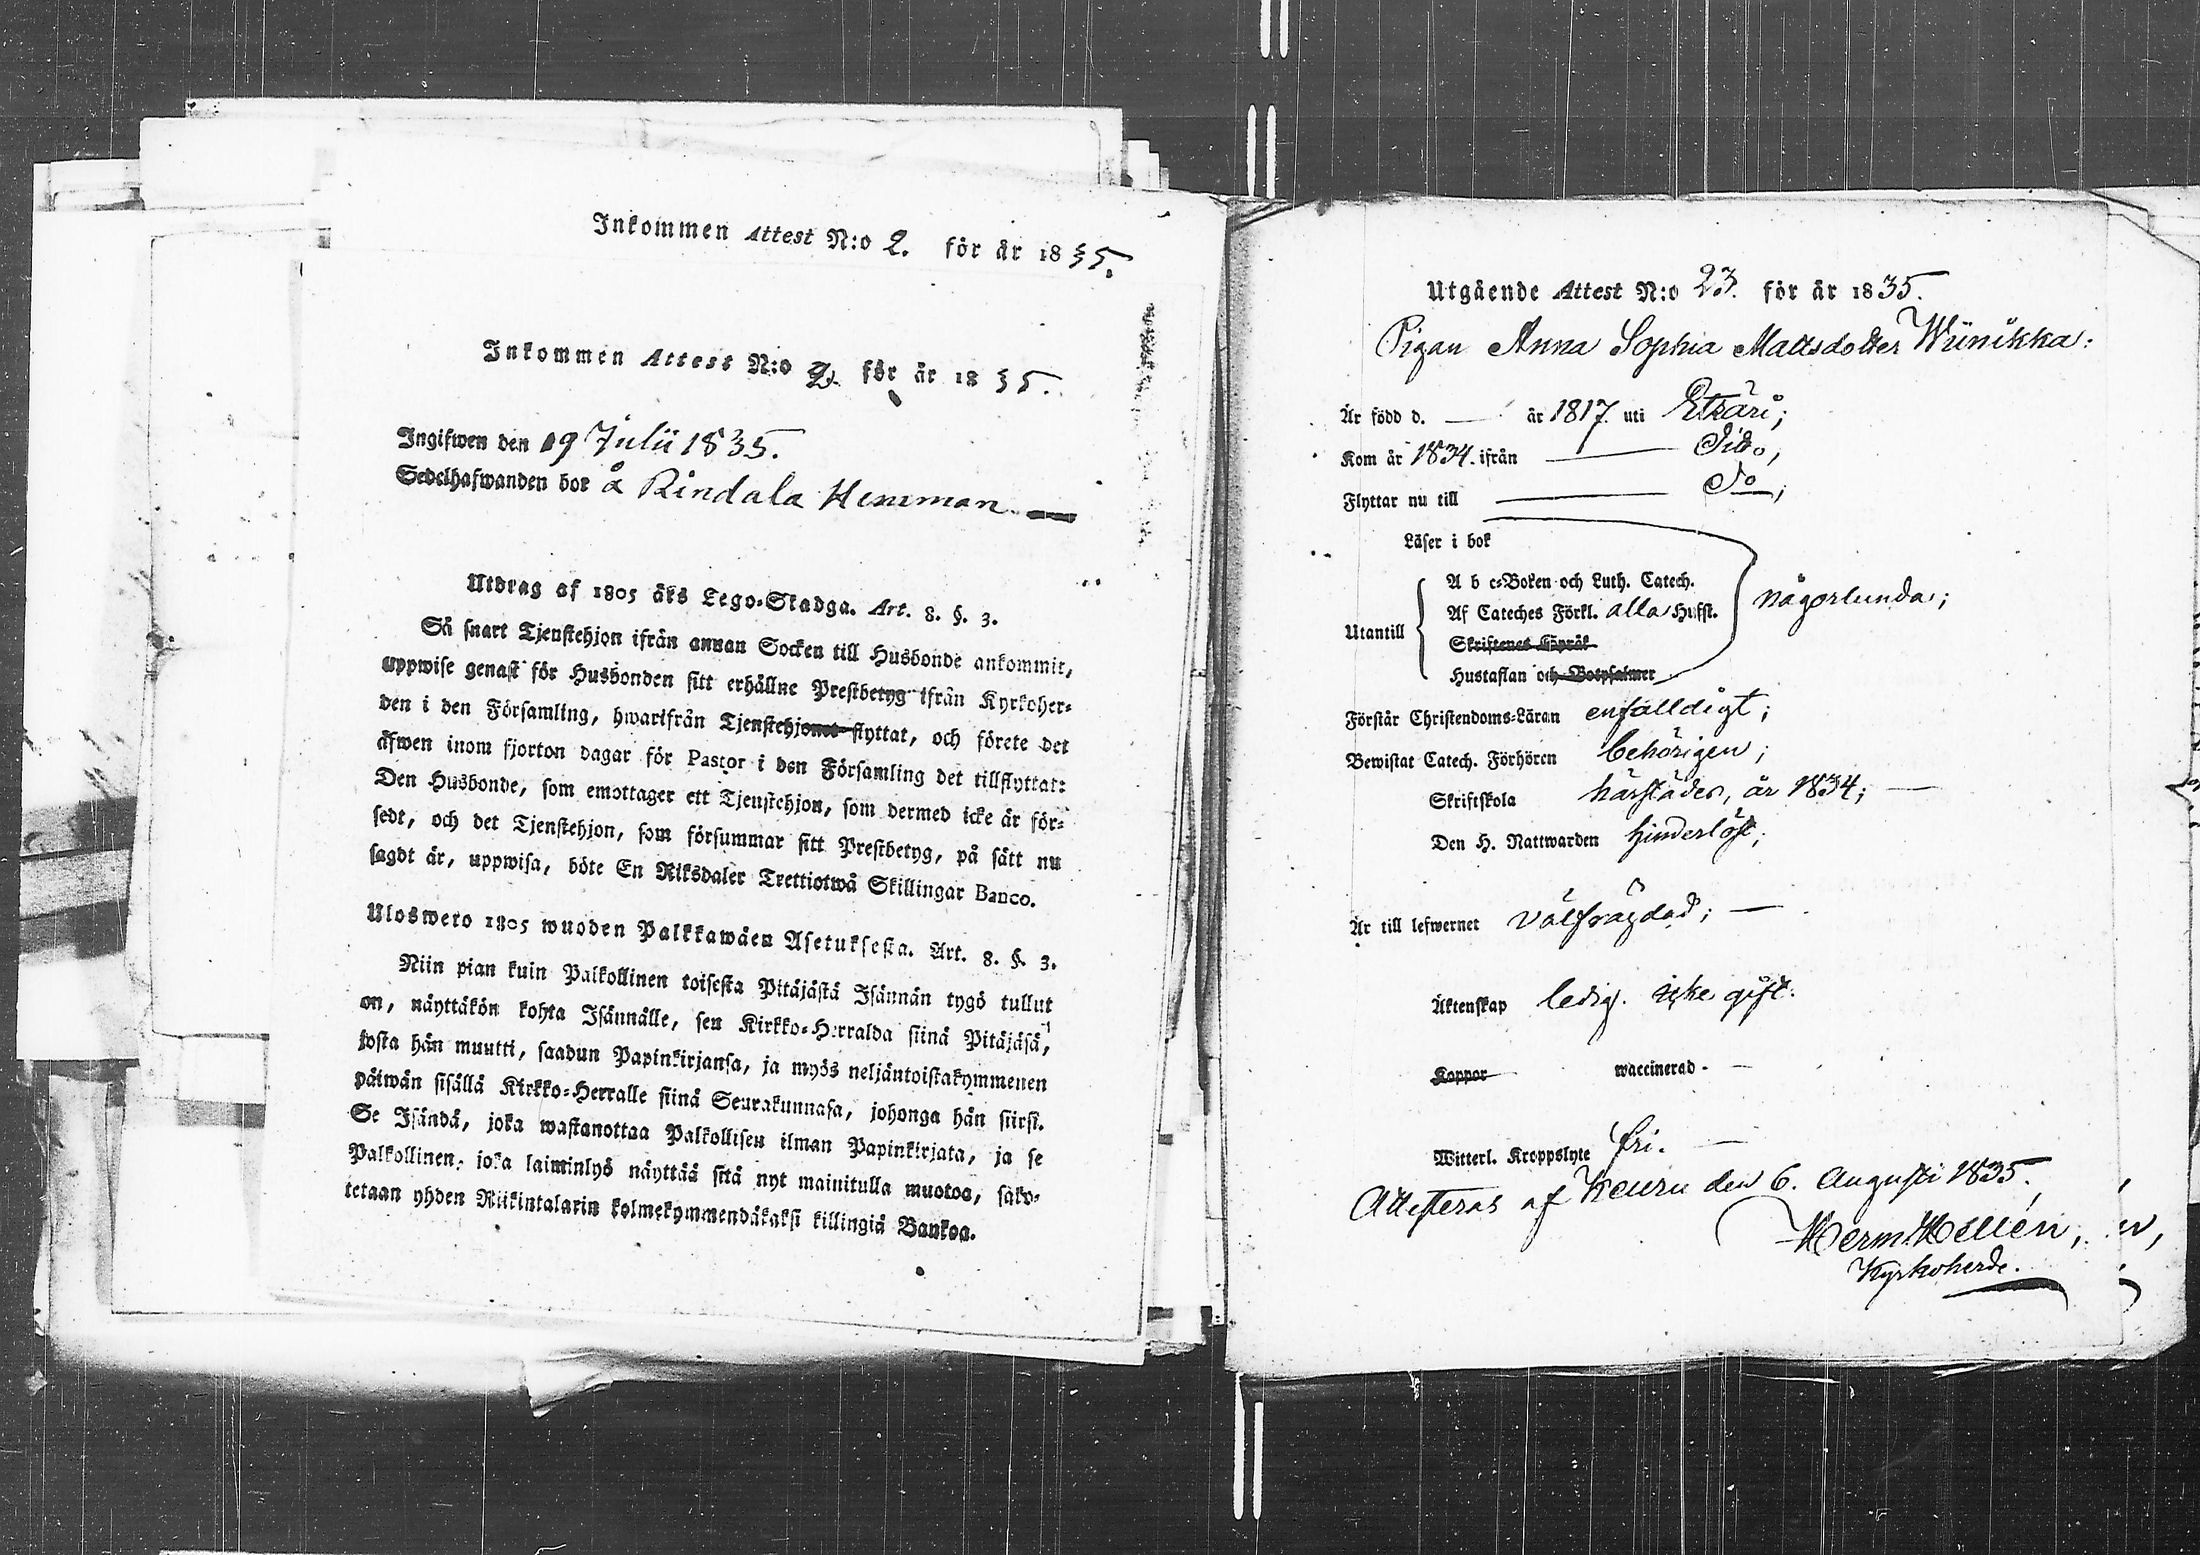 Inkommen Attest N:o 2. för år 1835.
Inkommen Attest N:o 2 för år 1835.
Ingifwen den 19 Julii 1835.
Sedelhafwanden bor å Rindala Hemman
Utdrag af 1805 års Lego-Stadga. Art. 8. §. 3.
Så snart Tjenstehjon ifrån annan Socken till Husbonde ankommit,
uppwise genast för Husbonden sitt erhållne Prestbetyg ifrån Kyrkoher-
den i den Församling, hwarifrån Tjenstehjonet flyttat, och förete det
äfwen inom fjorton dagar för Pastor i den Församling det tillflyttat:
Den Husbonde, som emottager ett Tjenstehjon, som dermed icke är för-
sedt, och det Tjenstehjon, som försummar sitt Prestbetyg, på sätt nu
sagdt är, uppwisa, böte En Riksdaler Trettiotwå Skillingar Banco.
Uloswero 1805 wuoden Palkkawäen Asetuksesta. Art. 8. §. 3.
Niin pian kuin Palkollinen toisesta Pitäjästä Isännän tygö tullut
on, näyttäkön kohta Isännälle, sen Kirkko-Herralda siinä Pitäjäsä,
josta hän muutti, saadun Papinkirjansa, ja myös neljäntoistakymmenen
päiwän sisällä Kirkko-Herralle siinä Seurakunnasa, johonga hän siirsi.
Se Isändä, joka wastanottaa Palkollisen ilman Papinkirjata, ja se
Palkollinen, joka laiminlyö näyttää sitä nyt mainitulla muotoa, sako-
tetaan yhden Riikintalarin kolmekymmendäkaksi killingiä Bankoa.
Utgående Attest N:o 23. för år 1835.
Pigan Anna Sophia Mattsdotter Wiinikka:
Är född d. — år 1817. uti Etsäri;
Kom år 1834. ifrån — Dito,
Flyttar nu till — Do,
Läser i bok
A b c-Boken och Luth. Catech.
Af Cateches Förkl. alla Hufst. någorlunda;
Utantill
Skriftenes Språk
Hustaflan och Botpsalmer
Förstår Christendoms-Läran enfalldigt;
Bewistat Catech. Förhören behörigen;
Skriftskola härstädes, år 1834; —
Den H. Nattwarden hinderlöst;
Är till lefwernet välfrägdad; —
Äktenskap ledig. icke gift.
Koppor waccinerad. —
Witterl. Kroppslyte fri. —
Attesteras af Keuru den 6. Augusti 1835.
Herm. Hellén,
Kyrkoherde.